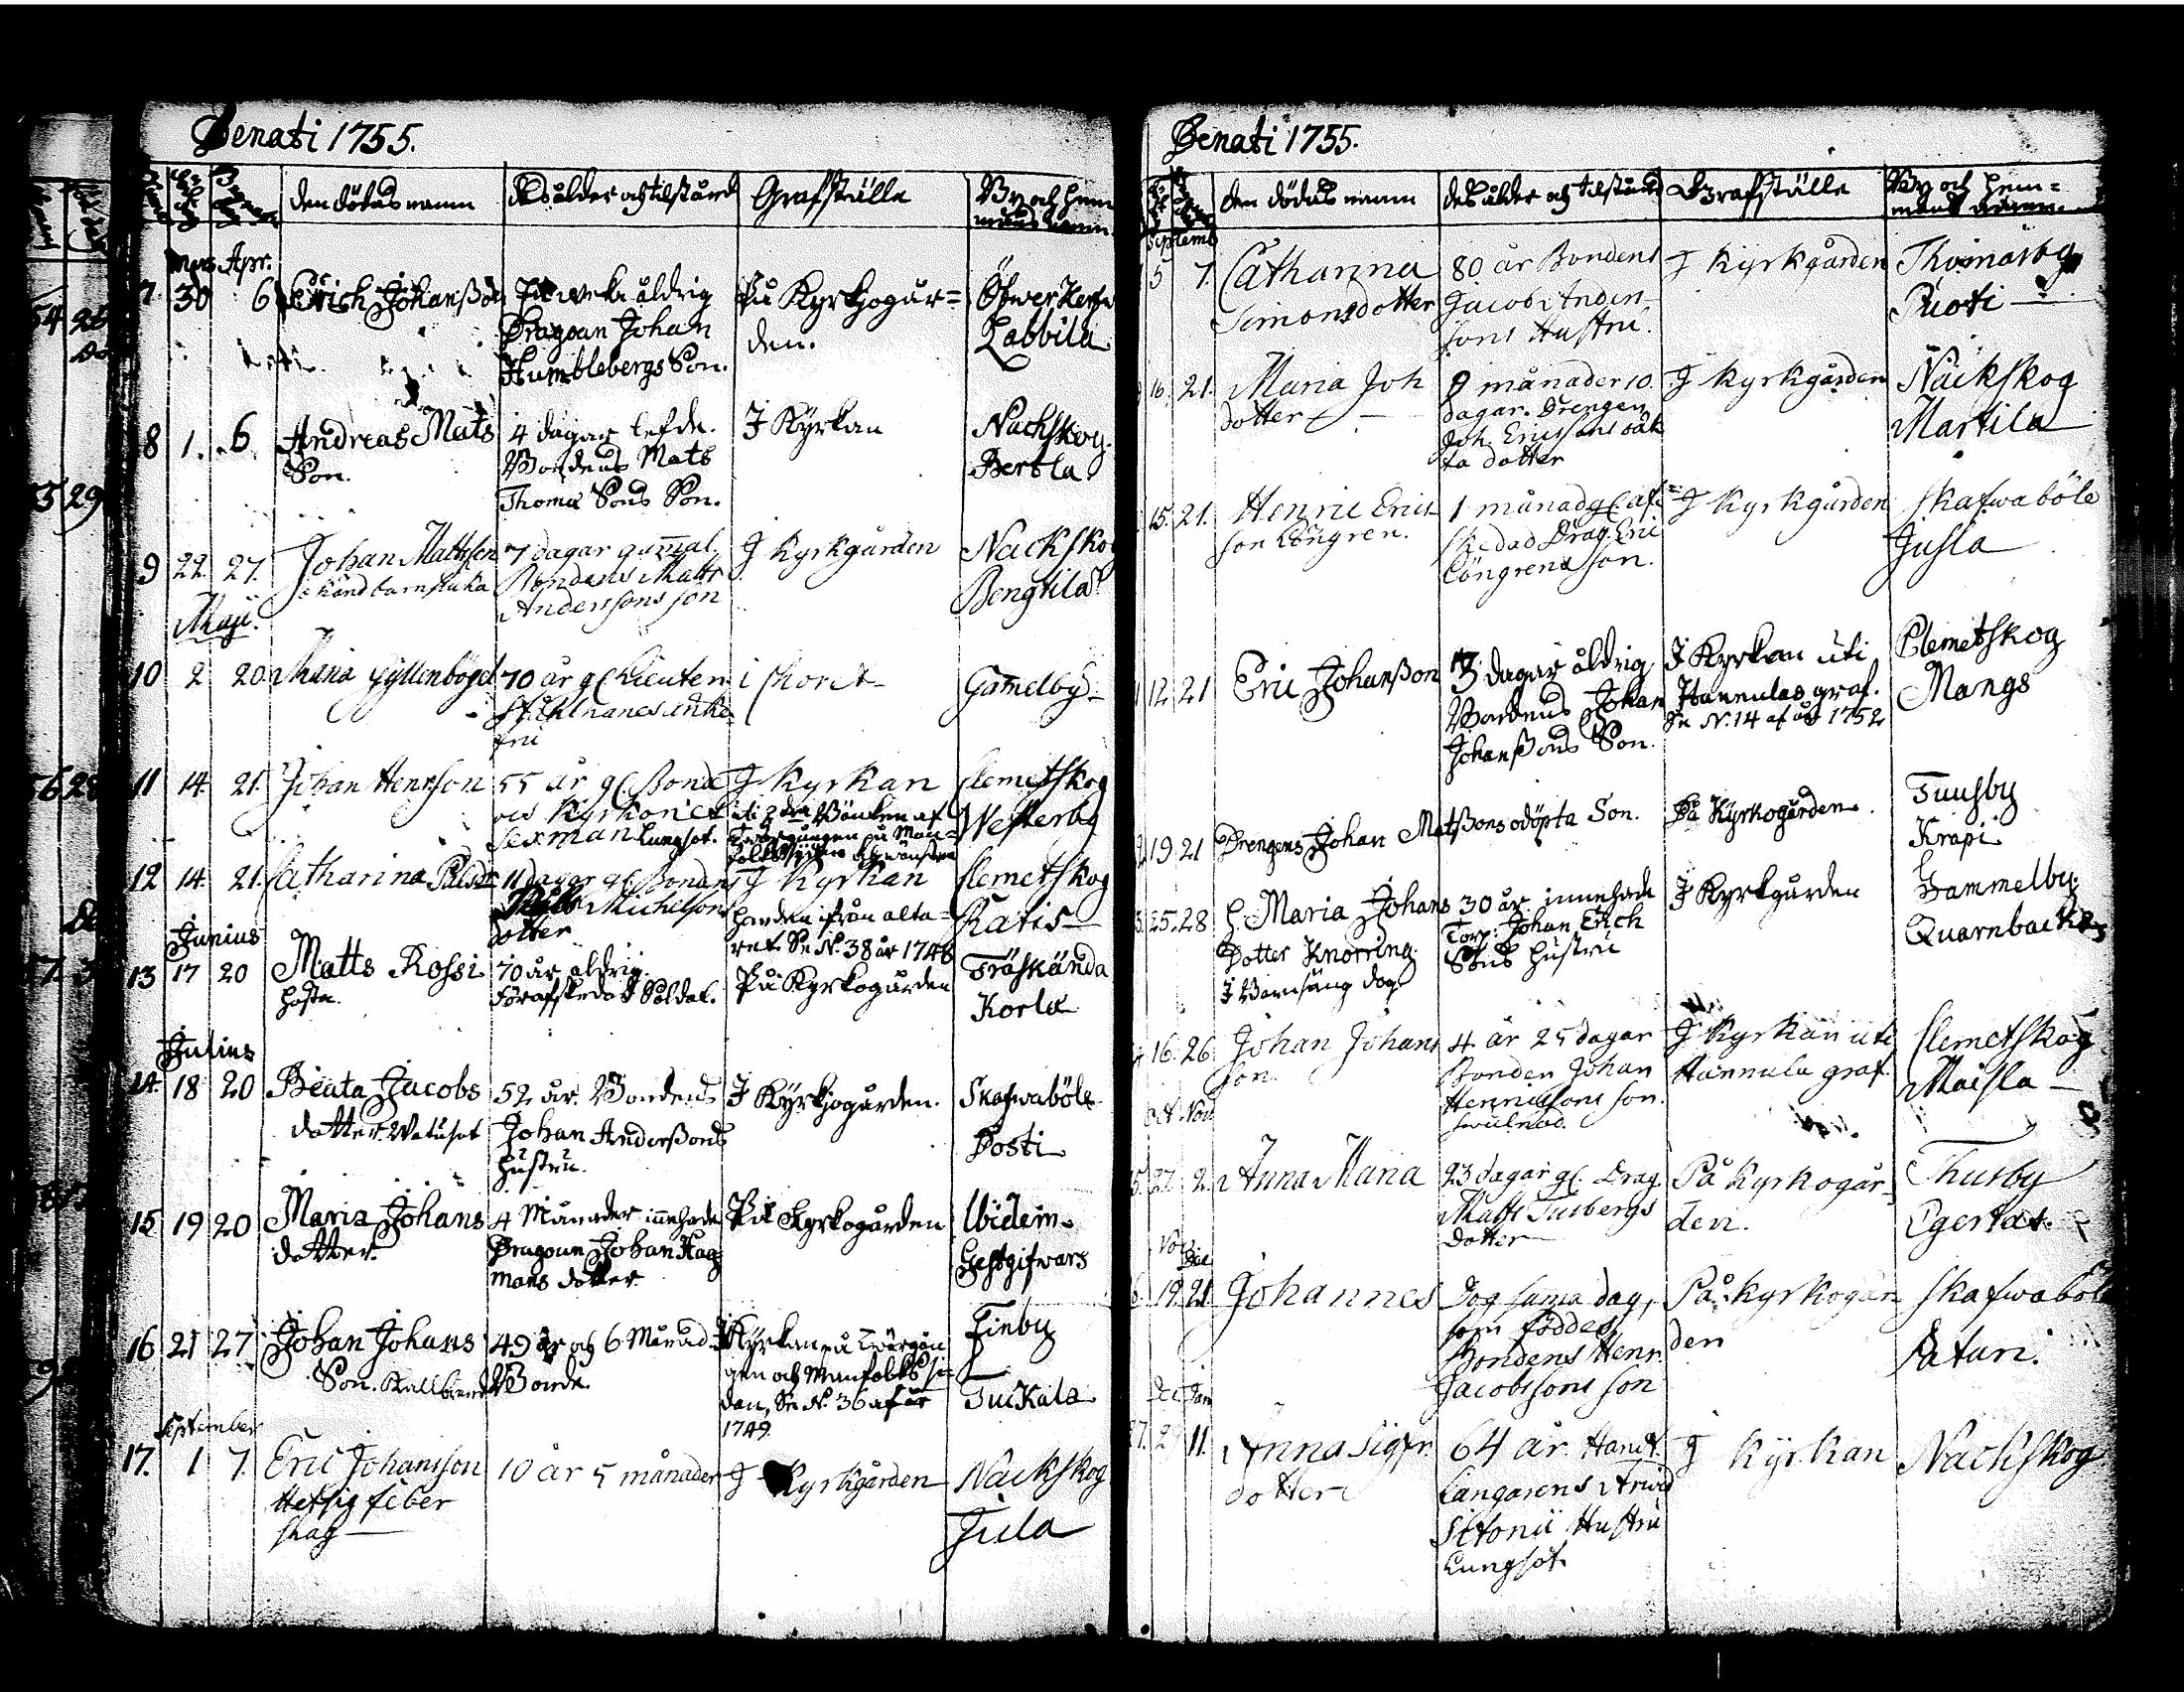 Denati 1755.
den dödas namn
des ålder och tilstånd
Grafställe
By och hem
mans namn.
Mars Apr.
7. 30 6 Erich Johanßon
weka åldrig
Dragoun Johan
Humblebergs Son.
På Kyrkjogår=
den.
Öfwer
Labbila
8 1. 6. Andreas Mats
Son.
4 dagar lefde.
Bondens Mats
Thomæ Sons Son.
I Kyrkan
Nackskog.
Bertla
9 22. 27. Johan Mattsson
okänd barnsiuka
7 dagar gamal
Bondens Matts
Anderssons son
I Kyrkgården
Nackskog
Bengtila
Maji.
10 2 20. Maria Gyllenbögel
70 år gl. Lieuten.
enke
fru
i Choret
Gamelby
11 14. 21. Johan Henrsson
55 år gl. Bonde
och Kyrkones
Sexman Lungsot.
I Kyrkan
uti 2dra Bänken af
Twärgången på Man=
folks sidan
Clemetskog
Westerby
12 14. 21. Catharina Pålsdr
11 dagar gl. Bondens
Påhls Michelsons
dotter
I Kyrkan
ifrån alta=
ret. Se N. 38 år 1748
Clemetskog
Katis
Junius
13 17 20 Matts Rossi
hosta.
70 år åldrig
Förafskedad Soldat.
På Kyrkogården
Träskända
Korla
Julius
14. 18 20 Beata Jacobs
dotter. Watusot
52 år. Bondens
Johan Anderßons
hustru.
I Kyrkjogården.
Skafwaböle
Posti
15 19 20 Maria Johans
dotter.
4 Månader innehade
Dragoun Johan Hag
mans dotter
På Kyrkogården
Ibidem.
Gestgifwars
16 21 27 Johan Johans
Son. Kallbrand
49 år och 6 Månad
Bonde.
I Kyrkan på Twärgån
gen och Manfolks si=
dan, Se N. 36 af år
1749.
Finby
Tuckala
September
17. 1 7. Eric Johansson
Hetsig feber
slag
10 år 5 månader
I Kyrkgården
Nackskog
Jula
Denati 1755.
den dödas namn
des ålder och tilstånd
Grafställe
By och hem=
mans namn
Septemb
5 7. Catharina
Simonsdotter
80 år Bondens
Jacob Anders
sons Hustru.
I Kyrkgården
Thomasby
Puoti
16. 21. Maria Joh
dotter
9 månader 10
dagar. Drengen
Joh. Ericssons oäk
ta dotter
I Kyrkgården
Nackskog
Martila
15. 21. Henric Erics
son Löngren.
1 månad gl. af=
skedad Drag. Eric
Löngrens son.
I Kyrkgården
Skafwaböle
Jusla
12 21 Eric Johanßon
3 dagar åldrig
Bondens Johan
Johanßons Son.
I Kyrkan uti
Hannulas graf.
Se N. 14 af år 1752
Clemetskog
Mangs
19 21 Drengens Johan Matßons odöpta Son.
På Kyrkogården.
Tuusby
Krapi
25. 28 H. Maria Johans
Dotter Knorring.
I Barnsäng dog
30 år innehade
Torp: Johan Erich
Sons hustru
I Kyrkgården
Gammelby.
Quarnbacka
16. 26 Johan Johans
son.
4 år 25 dagar
Bonden Johan
Henricssons son.
swulnad.
I Kyrkan uti
Hannula graf
Clemetskog
Maisla
Oct. Nov.
27. 2. Anna Maria
23 dagar gl. Drag.
Matts Tusbergs
dotter
På Kyrkogår=
den.
Thusby
Egertas.
Nov. Dec
19. 21. Johannes
Dog sama dag,
som föddes,
Bondens Henr.
Jacobssons son
På Kyrkogår
den
Skafwaböle
Paturi.
Dec. Jan
11. Anna Sigfr.
dotter
64 år
Arvid
Sitonii Hustru
Lungsot
I Kyrkan
Nackskog